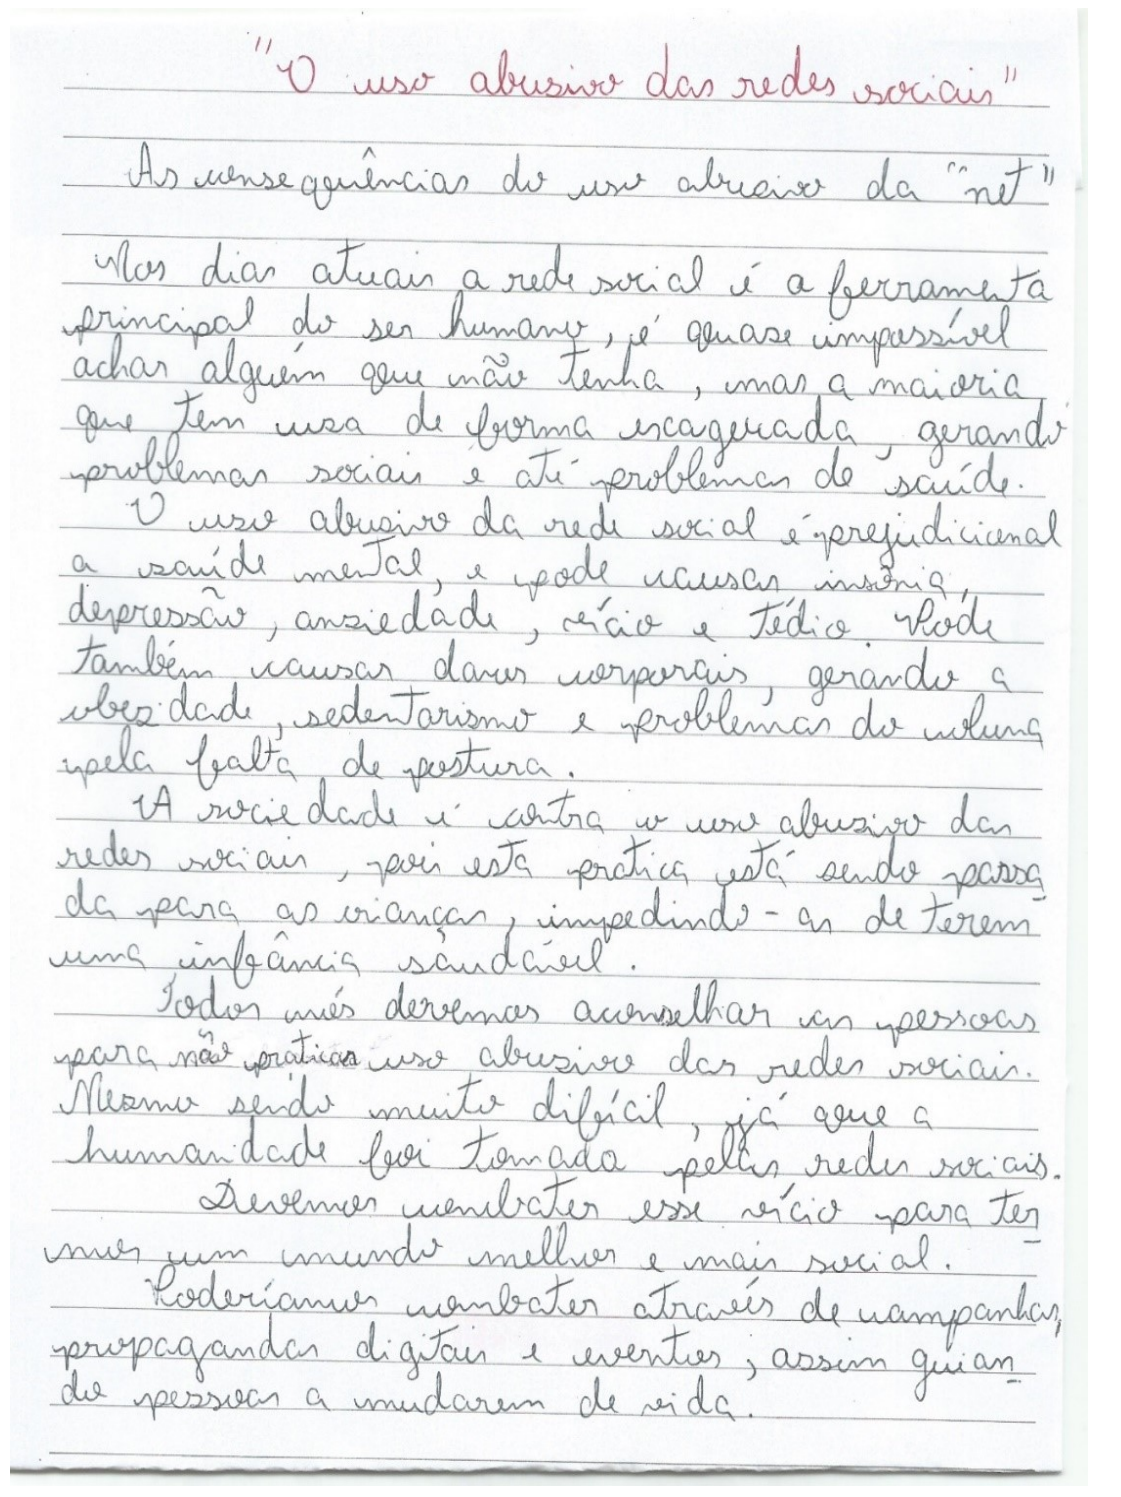 "O uso abusivo das redes sociais"
As consequências do uso abusivo da "net"
Nos dias atuais a rede social é a ferramenta
principal do ser humano, é quase impossível
achar alguém que não tenha, mas a maioria
que tem usa de forma escagerada, gerando
problemas sociais e até problemas de saúde.
O uso abusivo da rede social é prejudicional
a saúde mental, e pode causar insônia,
depressão, anziedade, vício e tédio. Pode
também causar danos corporais, gerando a
obezidade, sedentarismo e problemas do coluna
pela falta de postura.
A sociedade é contra o uso abuzivo das
redes sociais, pois esta pratica está sendo passa
da para as crianças, impedindo-as de terem
uma infância saudável.
Todos nós devemos aconselhar as pessoas
para não praticar uso abusivo das redes sociais.
Mesmo sendo muito difícil, já que a
humanidade foi tomada pelas redes sociais.
Devemos combater esse vício para ter
mos um mundo melhor e mais social.
Poderíamos combater através de campanhas,
propagandas digitais e eventos, assim guian
do pessoas a mudarem de vida.